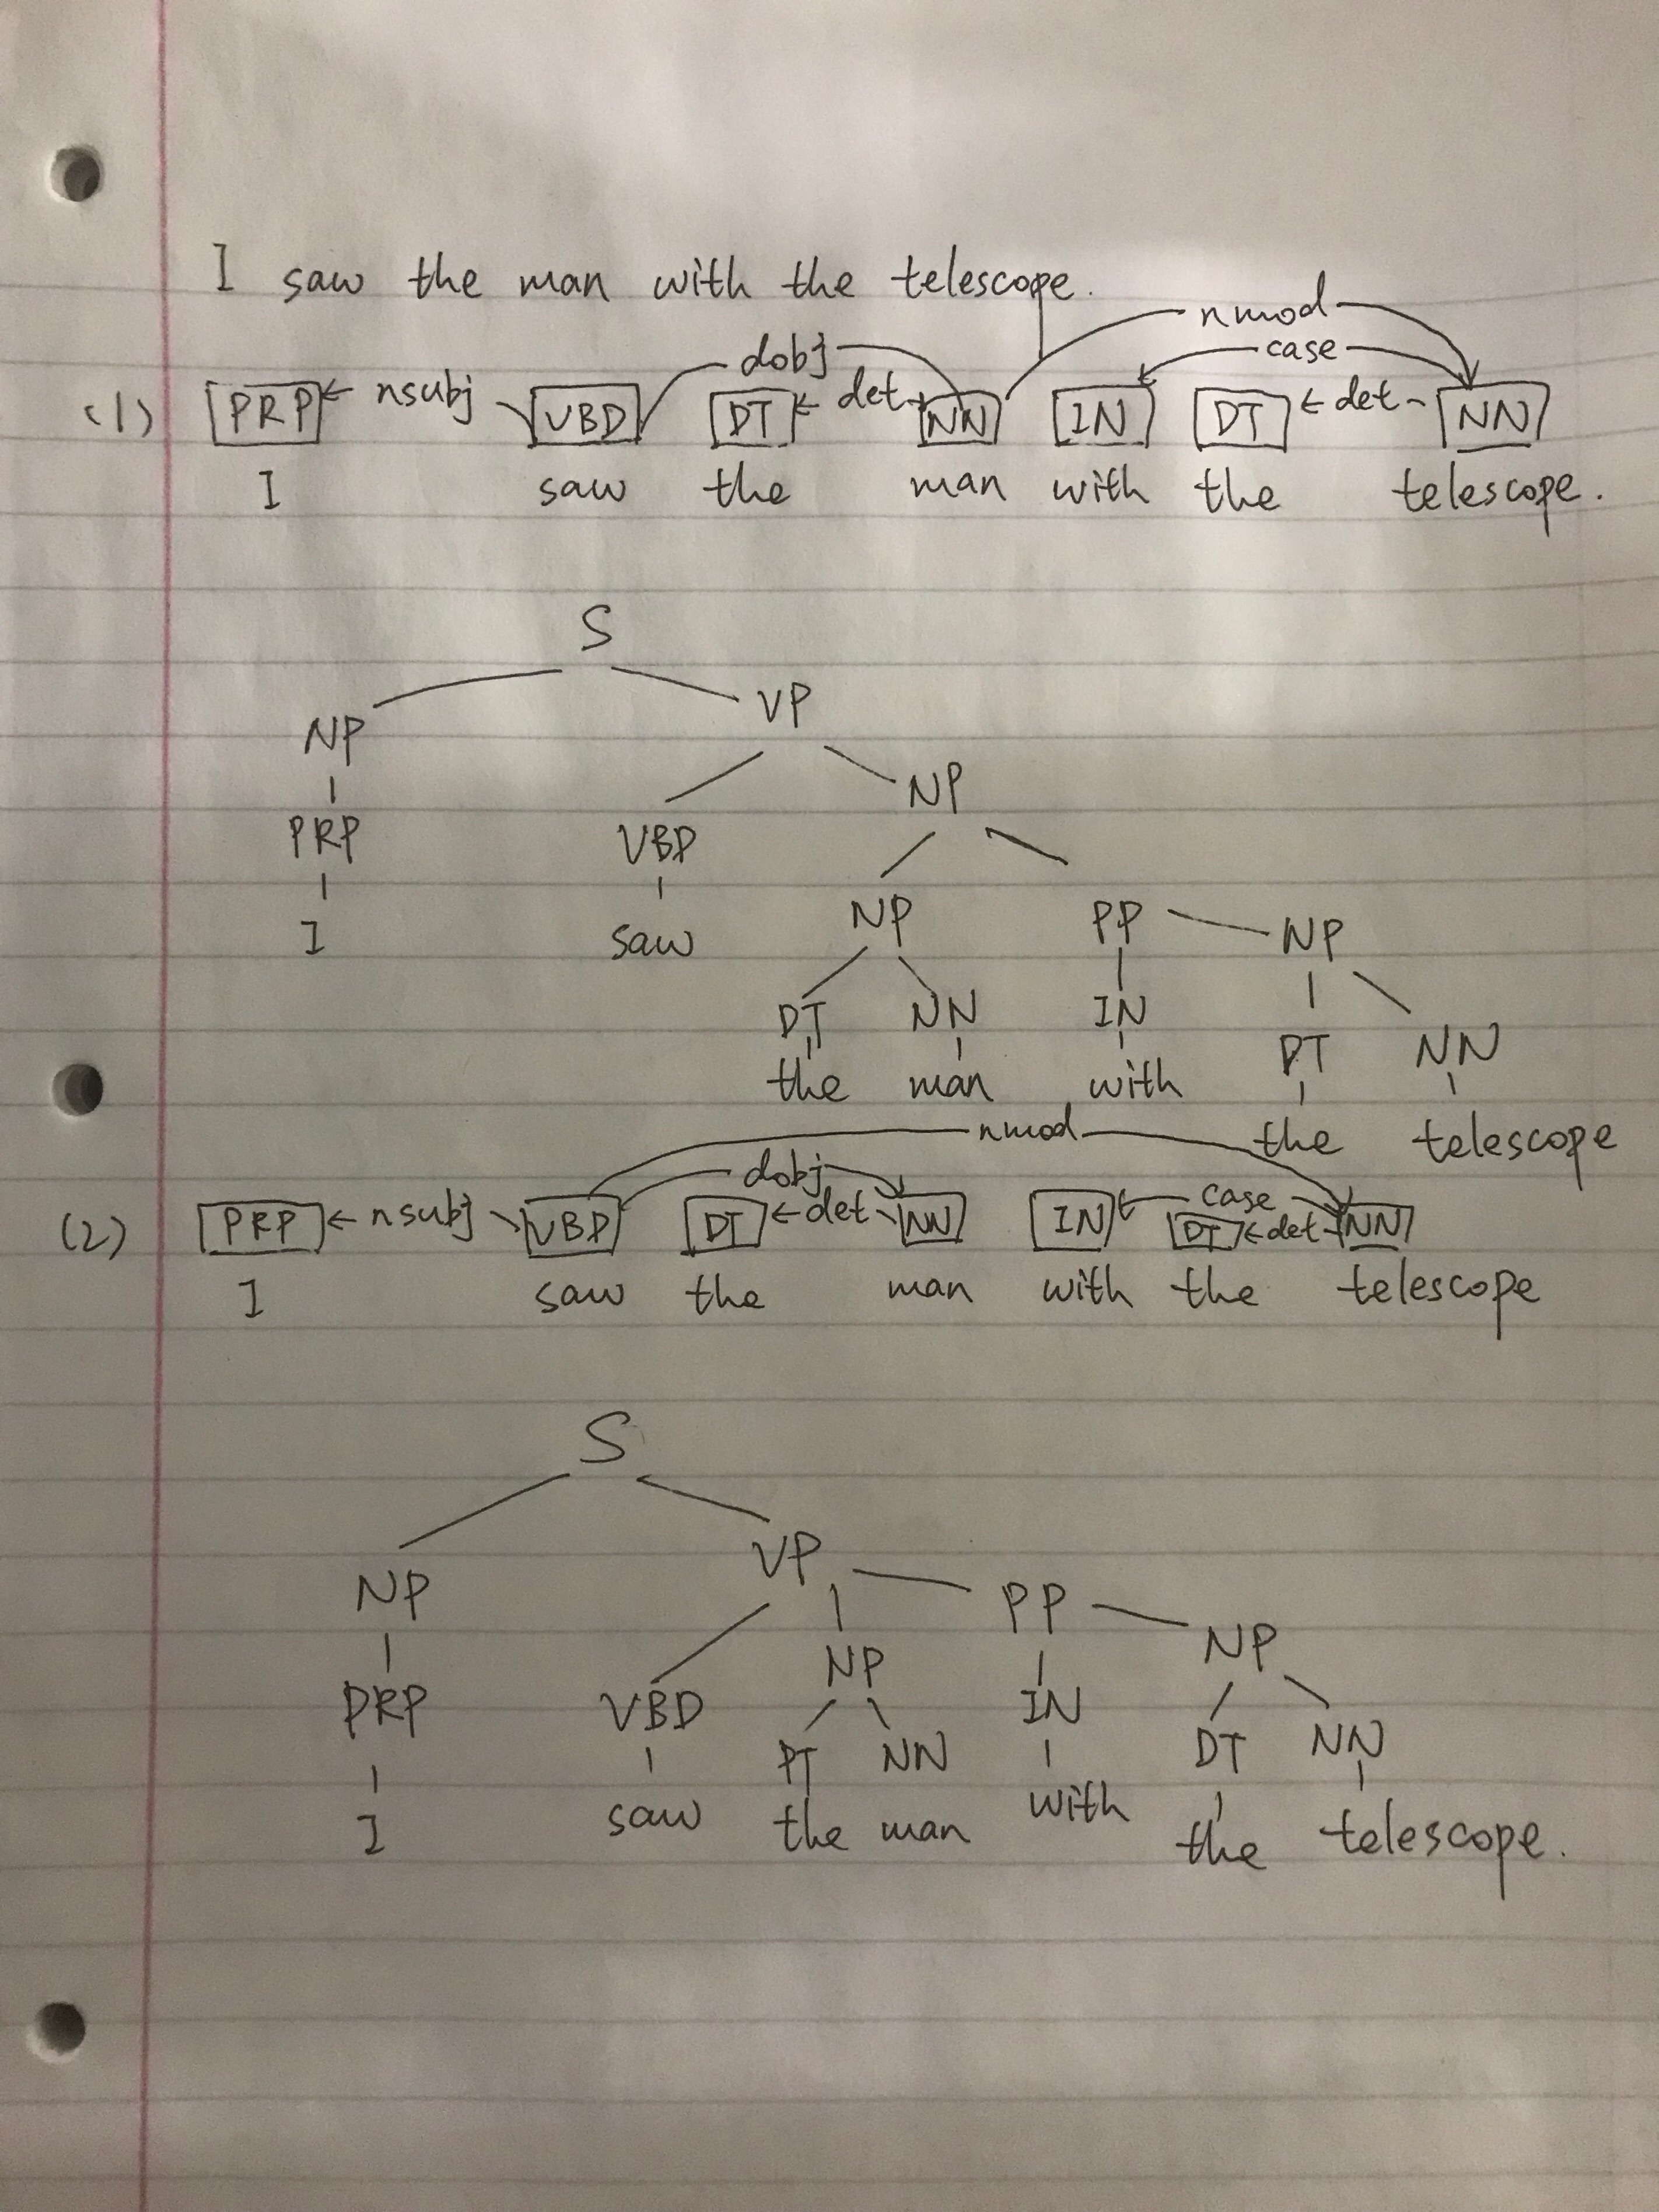 I saw the man with the telescope.
nmod
dobj case
(1) PRP nsubj VBD DT det NN IN DT det NN
I saw the man with the telescope.
S
VP
NP
NP
PRP VBD
NP PP NP
I saw
DT NN IN
DT NN
the man with
nmod
the telescope
dobj
case
(2) PRP nsubj VBD DT det NN IN DT det NN
I saw the man with the telescope
S
VP
NP PP
NP
NP
PRP VBD IN
DT NN DT NN
saw the man with
I the telescope.